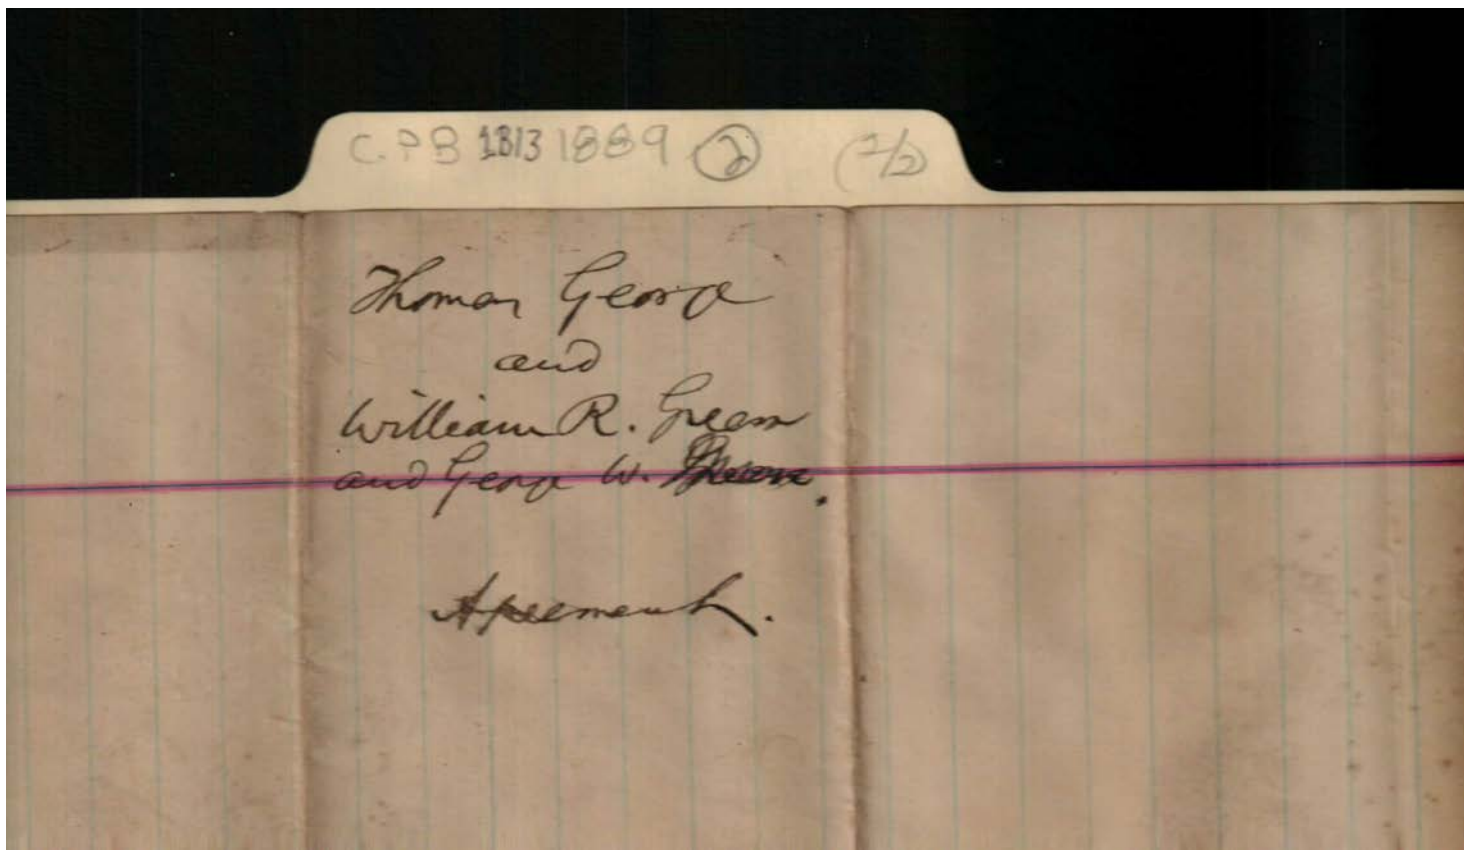 C.P.B 1813 1889 2 (1/2)
Thomas George
and
William R. Green
and George W. Green.
Agreement.